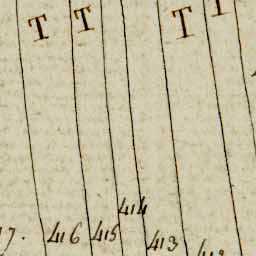 T T T T
414
416 415 413